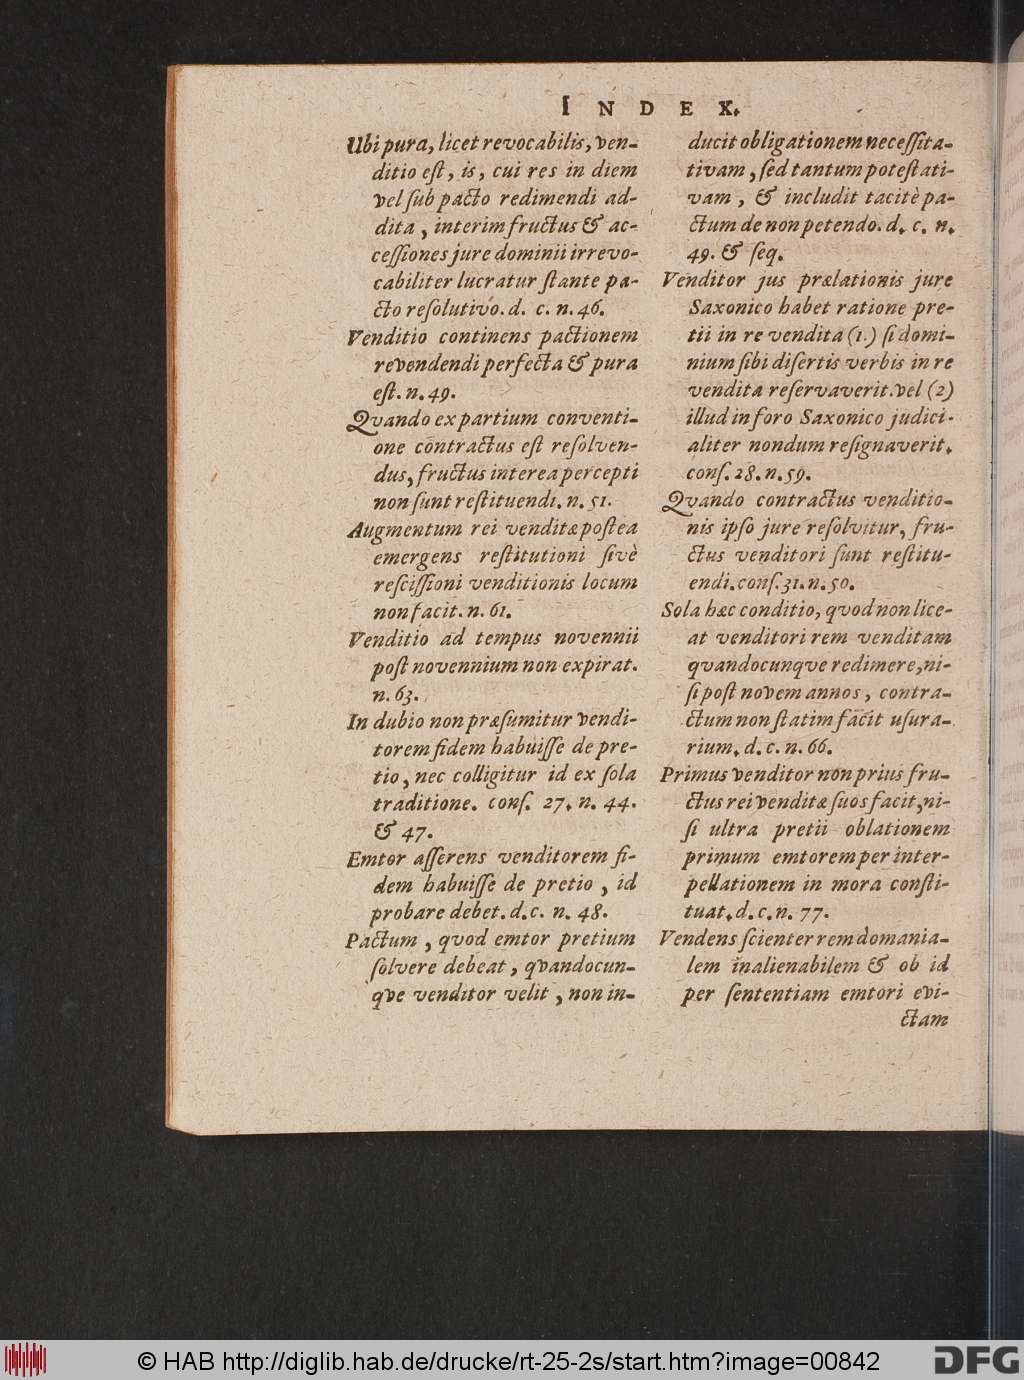 INDEX.
Ubi pura, licet revocabilis, ven-
ditio eſt, is, cui res in diem
vel ſub pacto redimendi ad-
dita, interim fructus & ac-
ceſſiones jure dominii irrevo-
cabiliter lucratur ſtante pa-
cto reſolutivo. d. c. n. 46.
Venditio continens pactionem
revendendi perfecta & pura
eſt. n. 49.
Qvando ex partium conventi-
one contractus eſt reſolven-
dus, fructus interea percepti
non ſunt reſtituendi. n. 51.
Augmentum rei venditæ poſtea
emergens reſtitutioni ſivè
reſciſſioni venditionis locum
non facit. n. 61.
Venditio ad tempus novennii
poſt novennium non expirat.
n. 63.
In dubio non præſumitur vendi-
torem fidem habuiſſe de pre-
tio, nec colligitur id ex ſola
traditione. conſ. 27. n. 44.
& 47.
Emtor aſſerens venditorem fi-
dem habuiſſe de pretio, id
probare debet. d. c. n. 48.
Pactum, qvod emtor pretium
ſolvere debeat, qvandocun-
qve venditor velit, non in-
ducit obligationem neceſſita-
tivam, ſed tantum poteſtati-
vam, & includit tacitè pa-
ctum de non petendo. d. c. n.
49. & ſeq.
Venditor jus prælationis jure
Saxonico habet ratione pre-
tii in re vendita (1.) ſi domi-
nium ſibi diſertis verbis in re
vendita reſervaverit. vel (2)
illud in foro Saxonico judici-
aliter nondum reſignaverit.
conſ. 28. n. 59.
Qvando contractus venditio-
nis ipſo jure reſolvitur, fru-
ctus venditori ſunt reſtitu-
endi. conſ. 31. n. 50.
Sola hæc conditio, qvod non lice-
at venditori rem venditam
qvandocunqve redimere, ni-
ſi poſt novem annos, contra-
ctum non ſtatim facit uſura-
rium. d. c. n. 66.
Primus venditor non prius fru-
ctus rei venditæ ſuos facit, ni-
ſi ultra pretii oblationem
primum emtorem per inter-
pellationem in mora conſti-
tuat. d. c. n. 77.
Vendens ſcienter rem domania-
lem inalienabilem & ob id
per ſententiam emtori evi-
ctam
© HAB http://diglib.hab.de/drucke/rt-25-2s/start.htm?image=00842
DFG